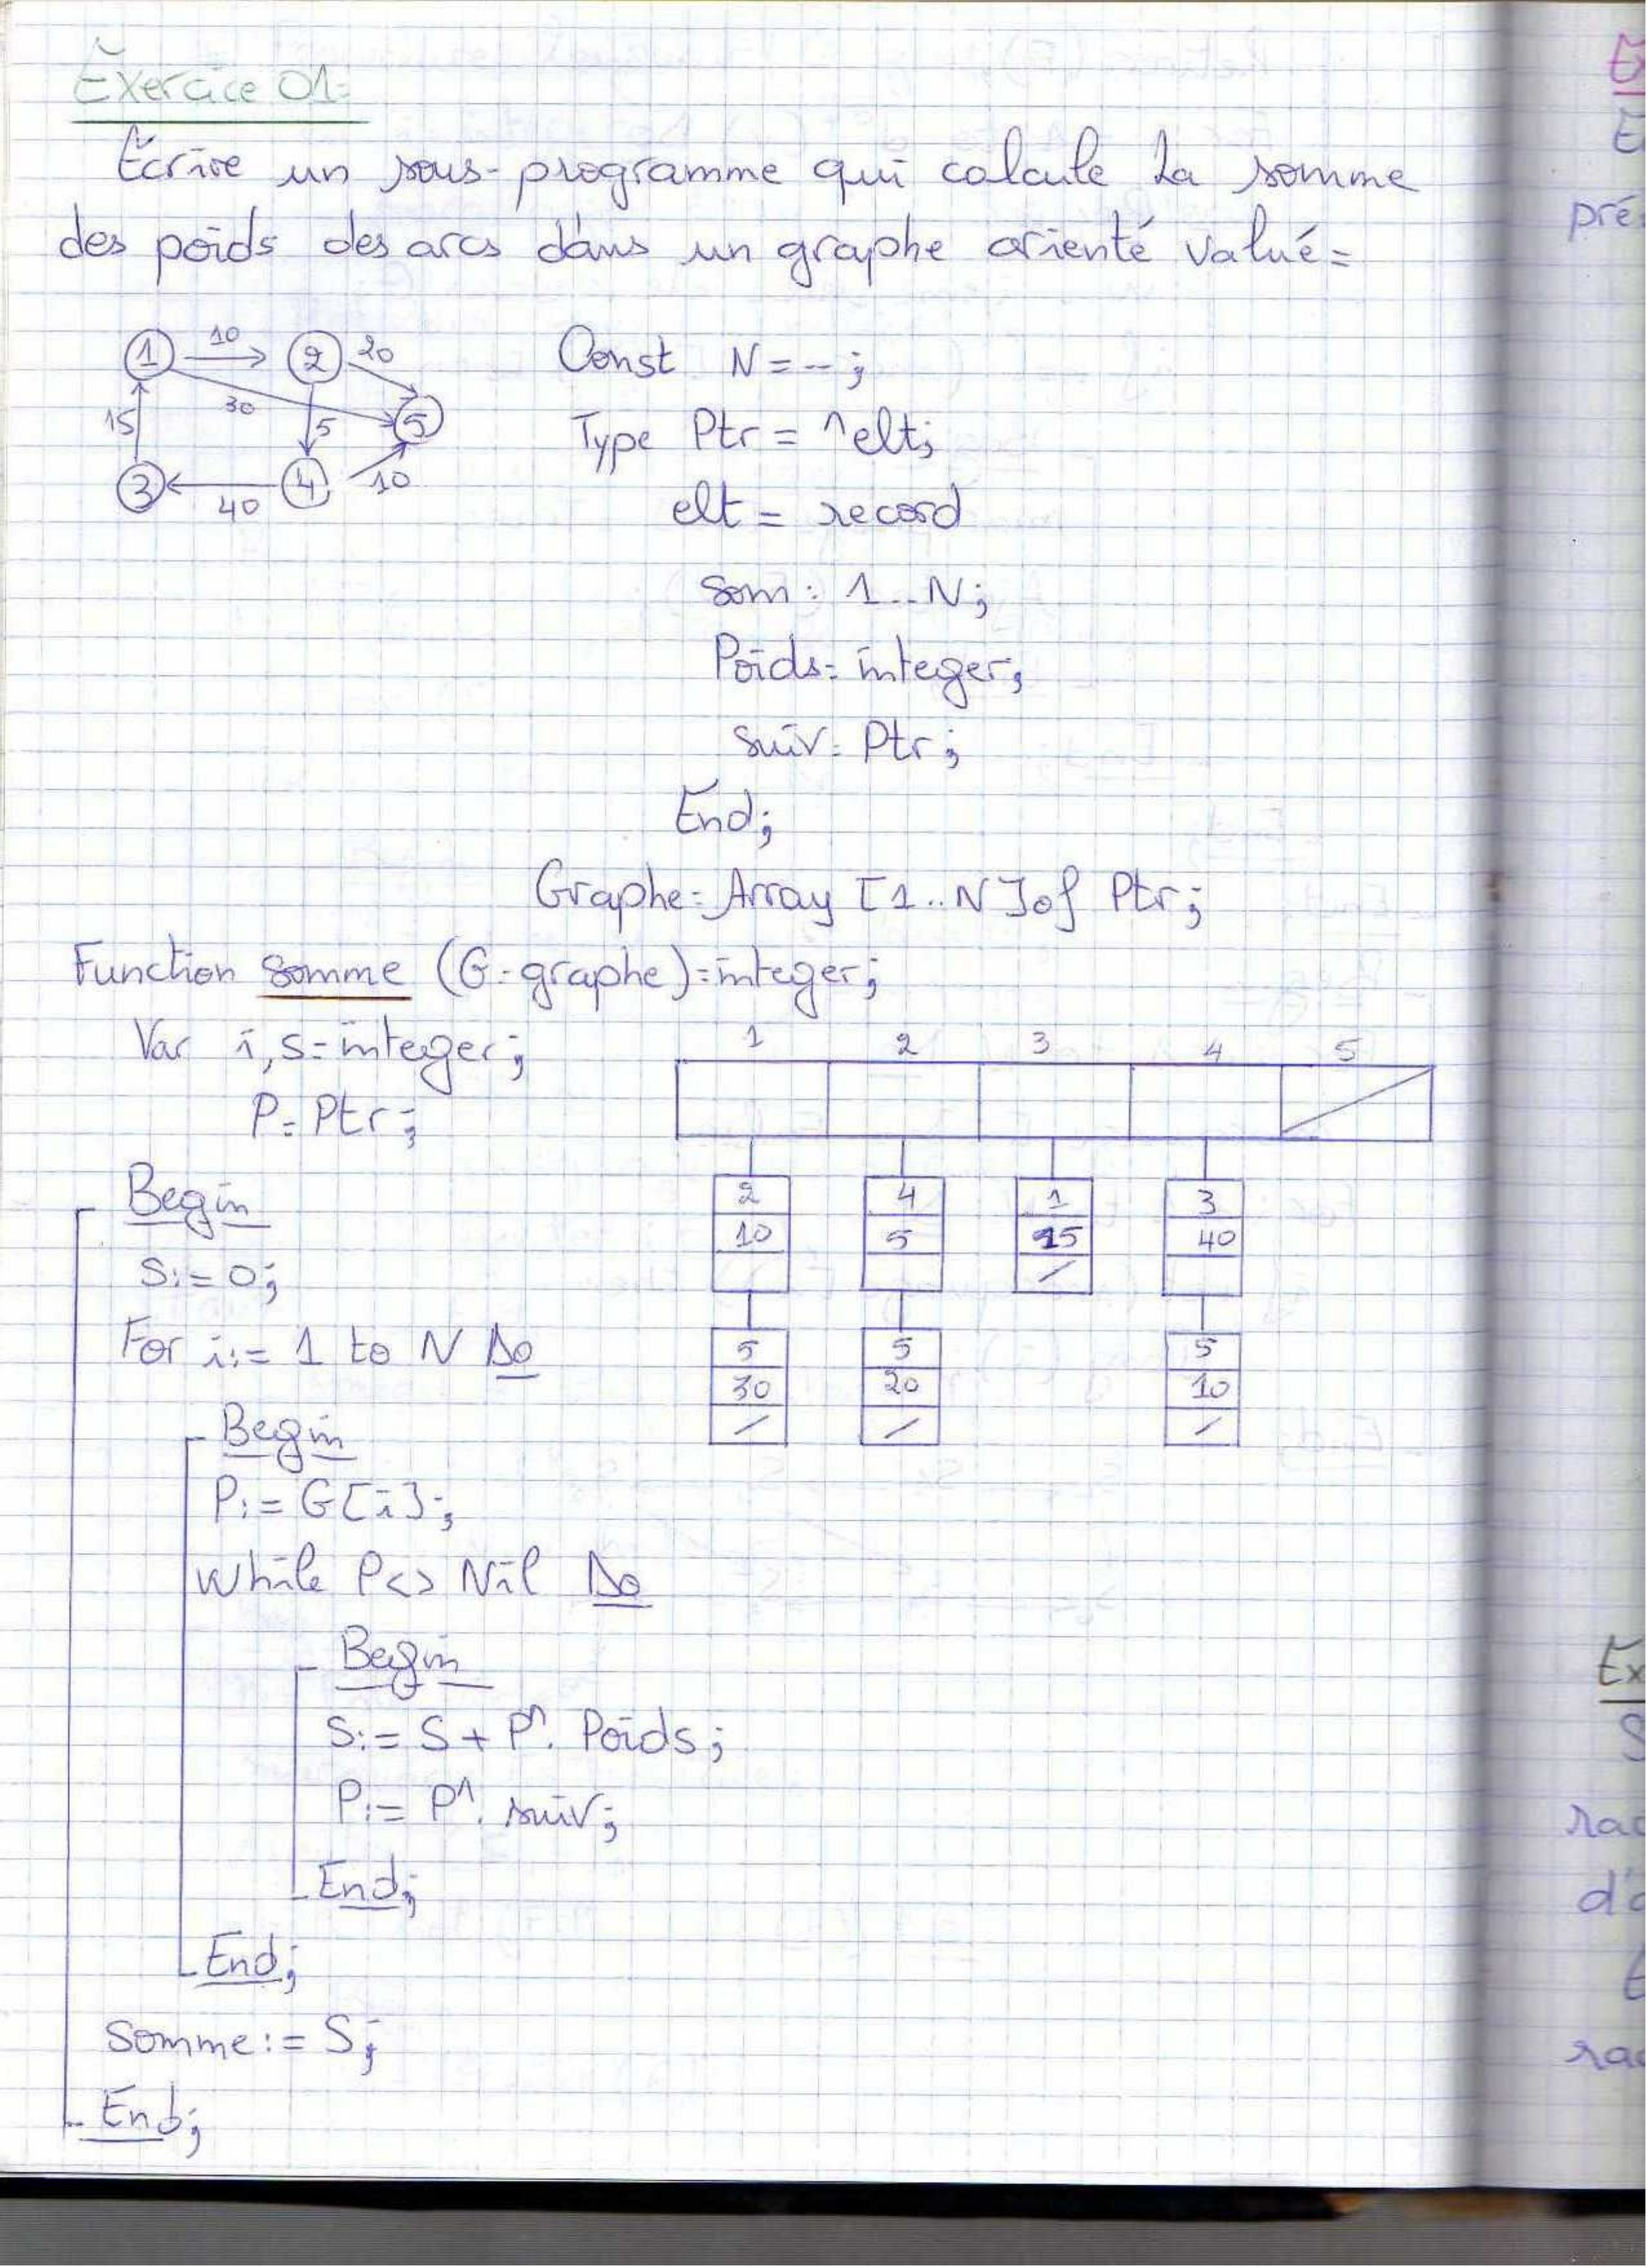 Exercice 01:
Écrire un sous-programme qui calcule la somme
des poids des arcs dans un graphe orienté valué:
10
1 2 20
30
15 5 5
3 4 10
40
Const N = --;
Type Ptr = ^elt;
elt = record
Som: 1..N;
Poids: integer;
Suiv: Ptr;
End;
Graphe = Array [1..N] of Ptr;
Function somme (G: graphe): integer;
Var i, s: integer;
P: Ptr;
1 2 3 4 5
2 4 1 3
10 5 15 40
/
5 5 5
30 20 10
/ / /
Begin
S:= 0;
For i:= 1 to N Do
Begin
P:= G[i];
While P<> Nil Do
Begin
S:= S + P^. Poids;
P:= P^. suiv;
End;
End;
Somme:= S;
End;
Ex
E
pré
Ex
S
rac
d'
rac